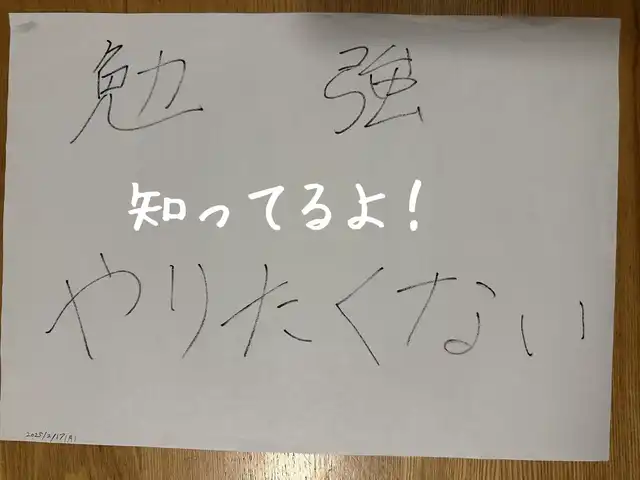 勉 強
知ってるよ!
やりたくない
2025/2/17(月)